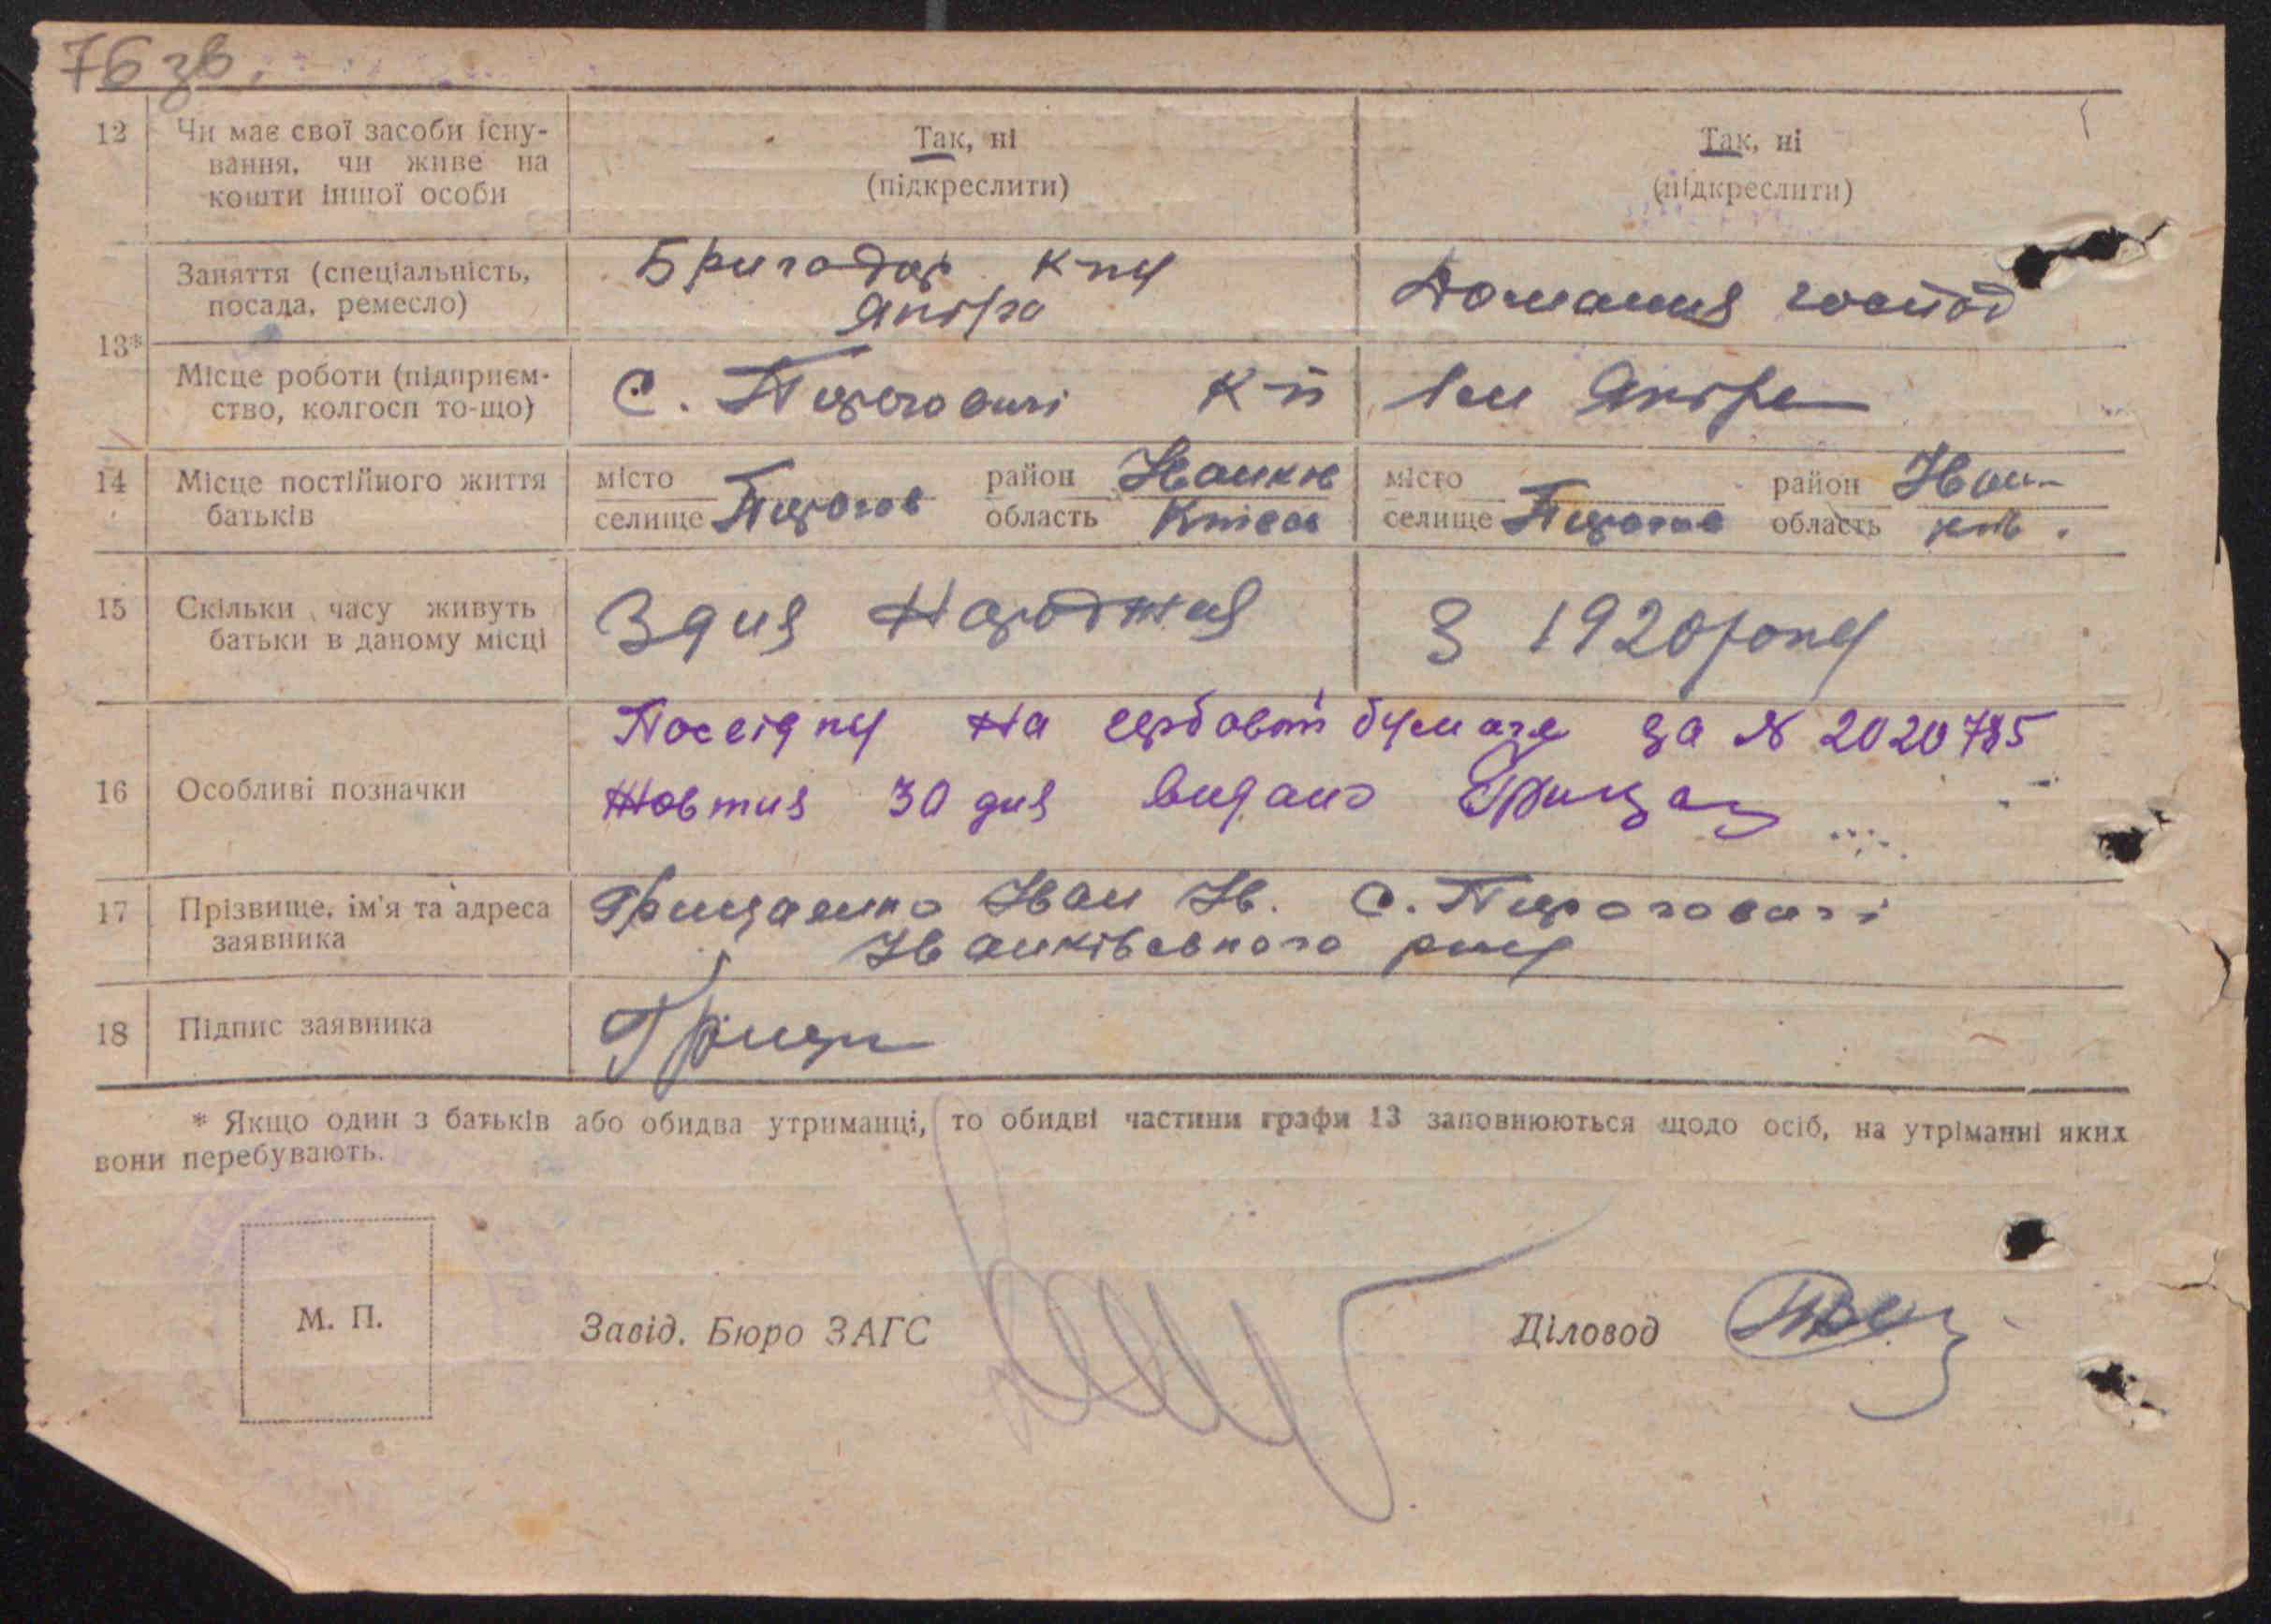 76 зв.
12 Чи має свої засоби існу-
вання, чи живе на
кошти іншої особи
Так, ні
(підкреслити)
Так, ні
(підкреслити)
13*
Заняття (спеціальність,
посада, ремесло)
Бригадор к-пу
Домашня господ
Місце роботи (підприєм-
ство, колгосп то-що)
С. Пироговичі к-п
Ім
14 Місце постійного життя
батьків
місто
селище Пирогов
район Іванків
область Київськ
місто
селище Пирогов
район Іван-
область ків.
15 Скільки часу живуть
батьки в даному місці
З дня Народжня
З 1920 року
16 Особливі позначки
Посвідку на гербовой бумаге за № 2020785
Жовтня 30 дня видано Грищ
17 Прізвище, ім'я та адреса
заявника
Грищенко Іван Ів. С. Пироговичі
Іванківського рну
18 Підпис заявника
Грищ
* Якщо один з батьків або обидва утриманці, то обидві частини графи 13 заповнюються щодо осіб, на утріманні яких
вони перебувають.
М. П.
Завід. Бюро ЗАГС
Діловод